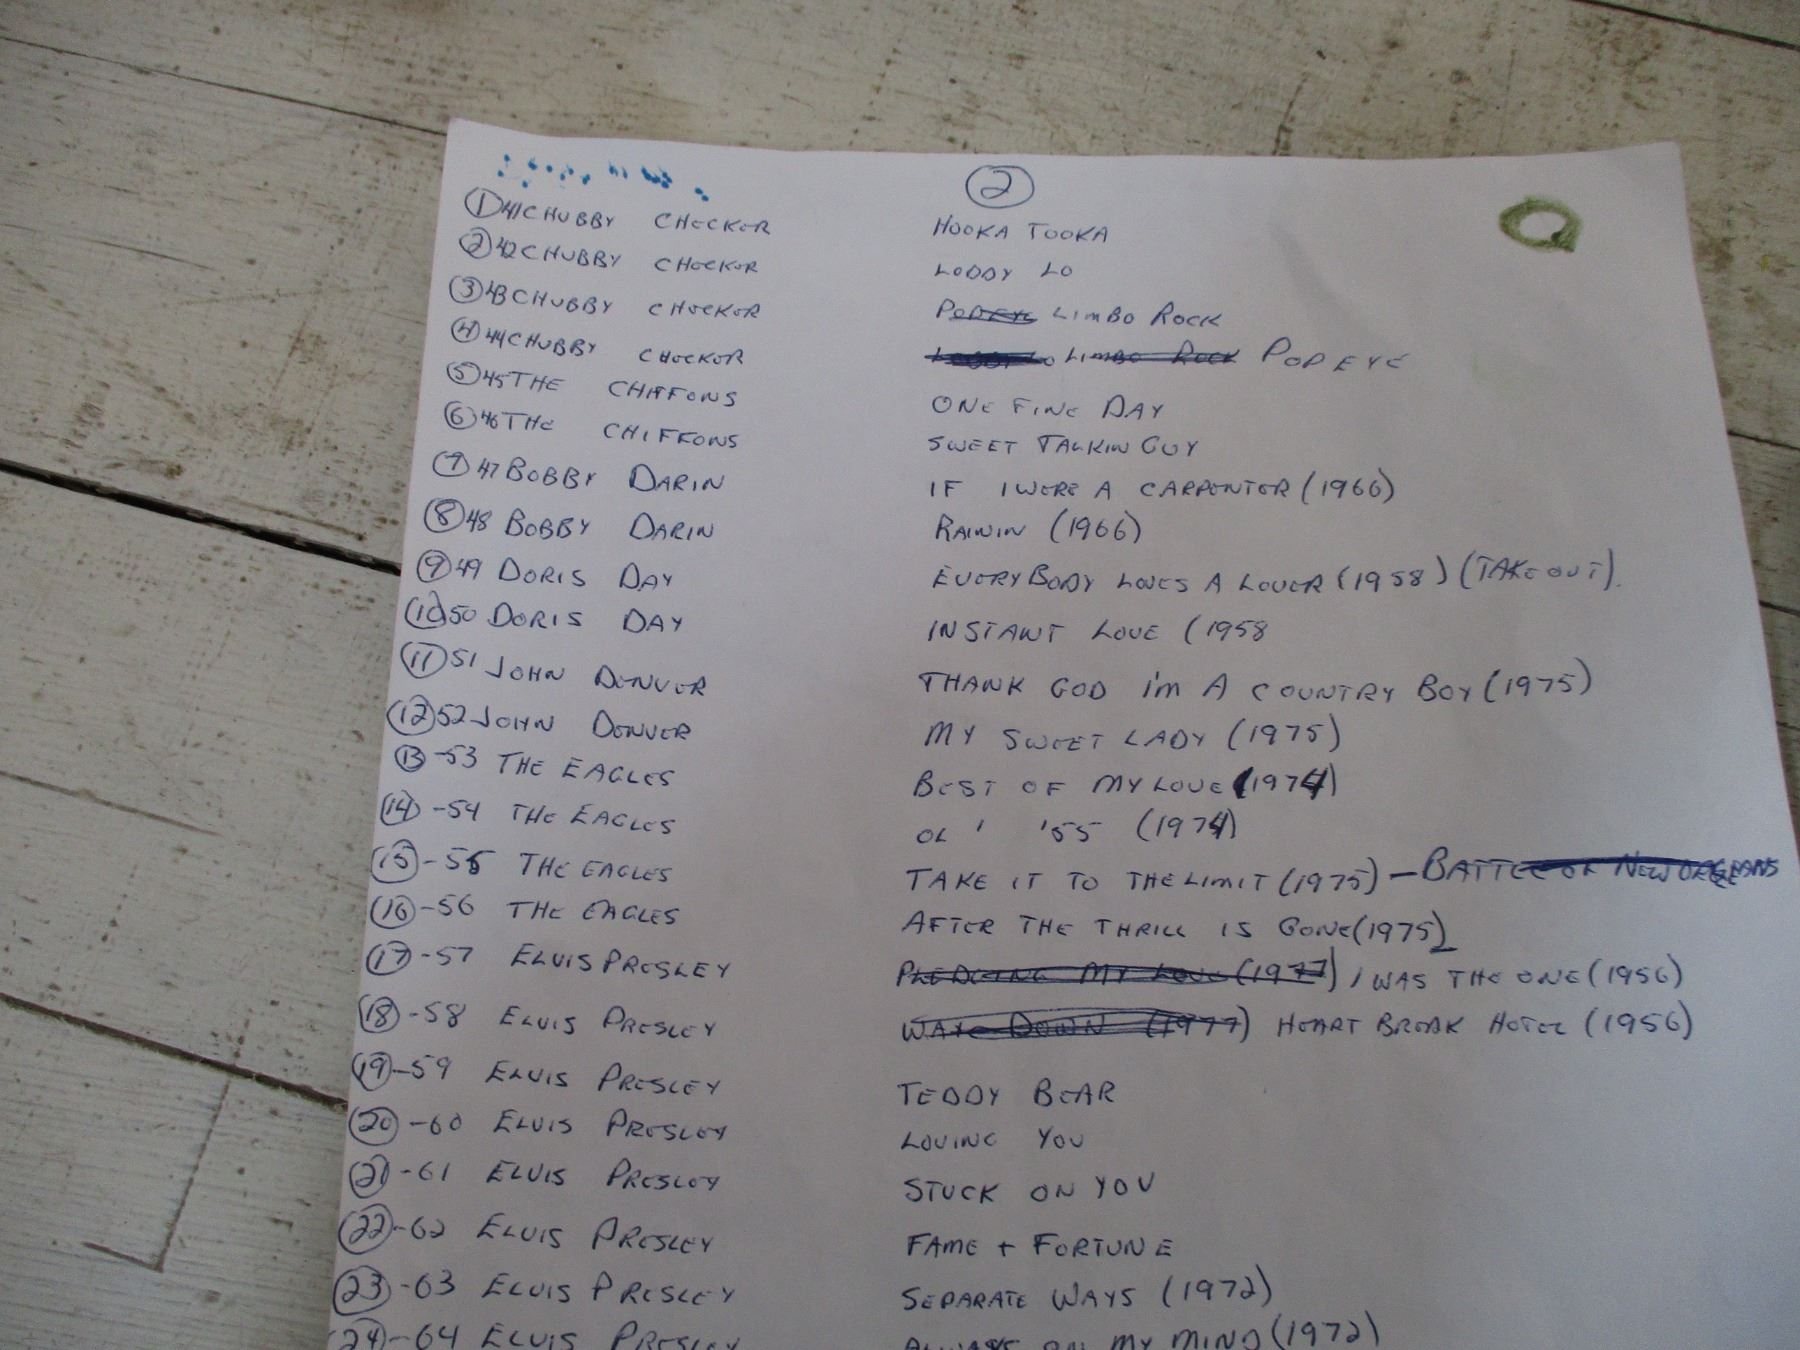 ②
① 41 CHUBBY CHECKER HOOKA TOOKA
② 42 CHUBBY CHECKER LODDY LO
③ 43 CHUBBY CHECKER POPEYE LIMBO ROCK
④ 44 CHUBBY CHECKER LODDY LO LIMBO ROCK POPEYE
⑤ 45 THE CHIFFONS ONE FINE DAY
⑥ 46 THE CHIFFONS SWEET TALKIN GUY
⑦ 47 BOBBY DARIN IF I WERE A CARPENTER (1966)
⑧ 48 BOBBY DARIN RAININ (1966)
⑨ 49 DORIS DAY EVERYBODY LOVES A LOVER (1958) (TAKE OUT).
⑩ 50 DORIS DAY INSTANT LOVE (1958
⑪ 51 JOHN DENVER THANK GOD I'M A COUNTRY BOY (1975)
⑫ 52 JOHN DENVER MY SWEET LADY (1975)
⑬ -53 THE EAGLES BEST OF MY LOVE (1974)
⑭ -54 THE EAGLES OL' '55 (1974)
⑮ -55 THE EAGLES TAKE IT TO THE LIMIT (1975) - BATTLE OF NEW ORLEANS
⑯ -56 THE EAGLES AFTER THE THRILL IS GONE (1975)
⑰ -57 ELVIS PRESLEY PLEDGING MY LOVE (1977) I WAS THE ONE (1956)
⑱ -58 ELVIS PRESLEY WAY DOWN (1977) HEART BREAK HOTEL (1956)
⑲ -59 ELVIS PRESLEY TEDDY BEAR
⑳ -60 ELVIS PRESLEY LOVING YOU
㉑ -61 ELVIS PRESLEY STUCK ON YOU
㉒ -62 ELVIS PRESLEY FAME + FORTUNE
㉓ -63 ELVIS PRESLEY SEPARATE WAYS (1972)
㉔ -64 ELVIS PRESLEY ALWAYS ON MY MIND (1972)